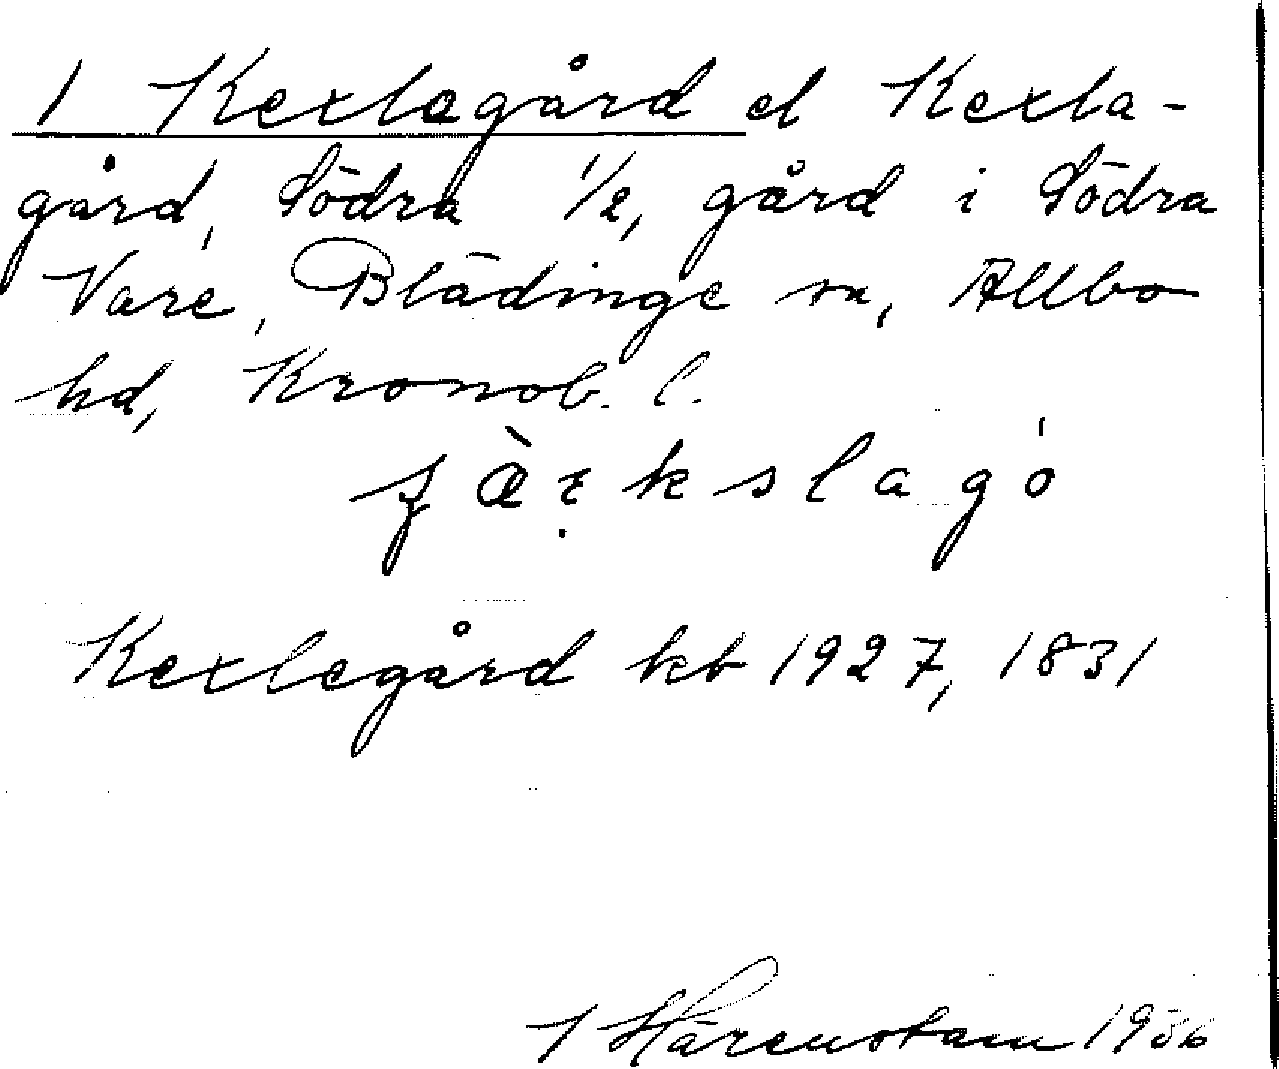 1 Kexlegård el Kexla-
gård, Södra 1/2, gård i Södra
Vare, Blädinge sn, Allbo
hd, Kronob. l.
kslagó
Kexlegård kb 1927, 1831
Härenstam 1936